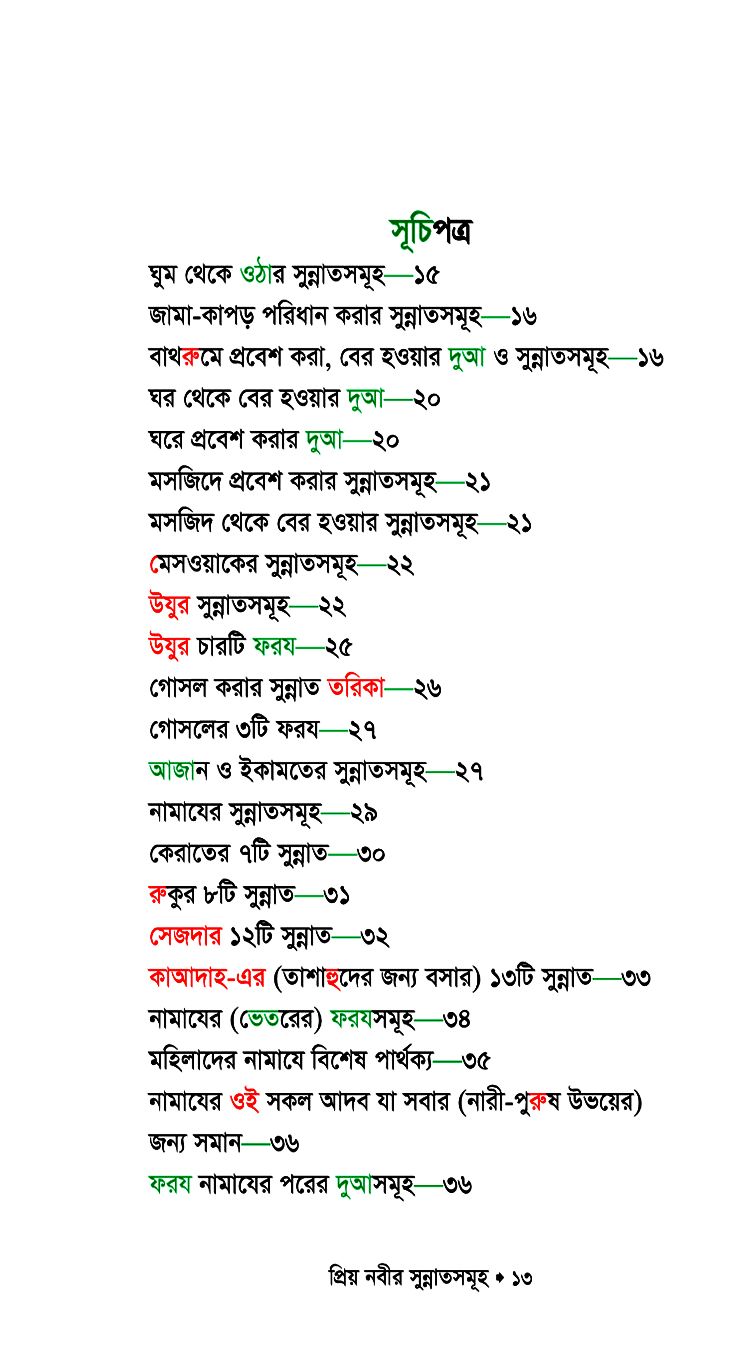 সূচিপত্র
ঘুম থেকে ওঠার সুন্নাতসমূহ—১৫
জামা-কাপড় পরিধান করার সুন্নাতসমূহ—১৬
বাথরুমে প্রবেশ করা, বের হওয়ার দুআ ও সুন্নাতসমূহ—১৬
ঘর থেকে বের হওয়ার দুআ—২০
ঘরে প্রবেশ করার দুআ—২০
মসজিদে প্রবেশ করার সুন্নাতসমূহ—২১
মসজিদ থেকে বের হওয়ার সুন্নাতসমূহ—২১
মেসওয়াকের সুন্নাতসমূহ—২২
উযুর সুন্নাতসমূহ—২২
উযুর চারটি ফরয—২৫
গোসল করার সুন্নাত তরিকা—২৬
গোসলের ৩টি ফরয—২৭
আজান ও ইকামতের সুন্নাতসমূহ—২৭
নামাযের সুন্নাতসমূহ—২৯
কেরাতের ৭টি সুন্নাত—৩০
রুকুর ৮টি সুন্নাত—৩১
সেজদার ১২টি সুন্নাত—৩২
কাআদাহ-এর (তাশাহুদের জন্য বসার) ১৩টি সুন্নাত—৩৩
নামাযের (ভেতরের) ফরযসমূহ—৩৪
মহিলাদের নামাযে বিশেষ পার্থক্য—৩৫
নামাযের ওই সকল আদব যা সবার (নারী-পুরুষ উভয়ের)
জন্য সমান—৩৬
ফরয নামাযের পরের দুআসমূহ—৩৬
প্রিয় নবীর সুন্নাতসমূহ ➧ ১৩